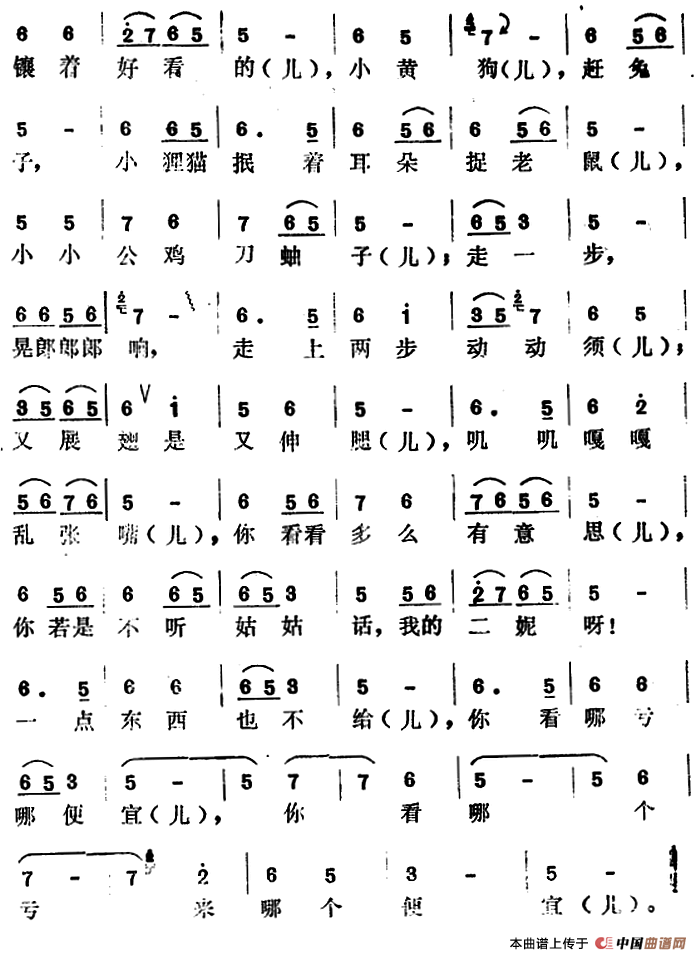 6 6 | 2̇ 7 6 5 | 5 - | 6 5 | 7 - | 6 5 6
镶着好看的(儿),小黄 狗(儿),赶兔
5 - | 6 6 5 | 6 . 5 | 6 5 6 | 6 5 6 | 5 -
子, 小狸猫抿着耳朵捉老 鼠(儿),
5 5 | 7 6 | 7 6 5 | 5 - | 6 5 3 | 5 -
小小公鸡刀蚰 子(儿);走一步,
6 6 5 6 | 7 - | 6 . 5 | 6 1̇ | 3 5 7 | 6 5
晃郎郎郎响, 走上两步动动须(儿);
3 5 6 5 | 6 1̇ | 5 6 | 5 - | 6 . 5 | 6 2̇
又展翅是又伸腿(儿),叽叽嘎嘎
5 6 7 6 | 5 - | 6 5 6 | 7 6 | 7 6 5 6 | 5 -
乱张嘴(儿),你看看多么有意思(儿),
6 5 6 | 6 6 5 | 6 5 3 | 5 5 6 | 2̇ 7 6 5 | 5 -
你若是不听姑姑话,我的二妮呀!
6 . 5 | 6 6 | 6 5 3 | 5 - | 6 . 5 | 6 6
一点东西也不给(儿),你看哪亏
6 5 3 | 5 - | 5 7 | 7 6 | 5 - | 5 6
哪便宜(儿), 你 看 哪 个
7 - | 7 2̇ | 6 5 | 3 - | 5 - | 5 -
亏 来哪个便 宜(儿)。
本曲谱上传于 中国曲谱网